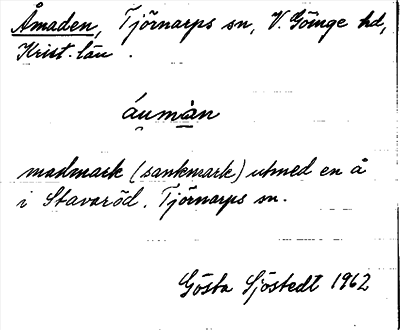 Åmaden, Tjörnarps sn, V. Göinge hd,
Krist. län.
áumàn
madmark (sankmark) utmed en å
i Stavaröd, Tjörnarps sn.
Gösta Sjöstedt 1962